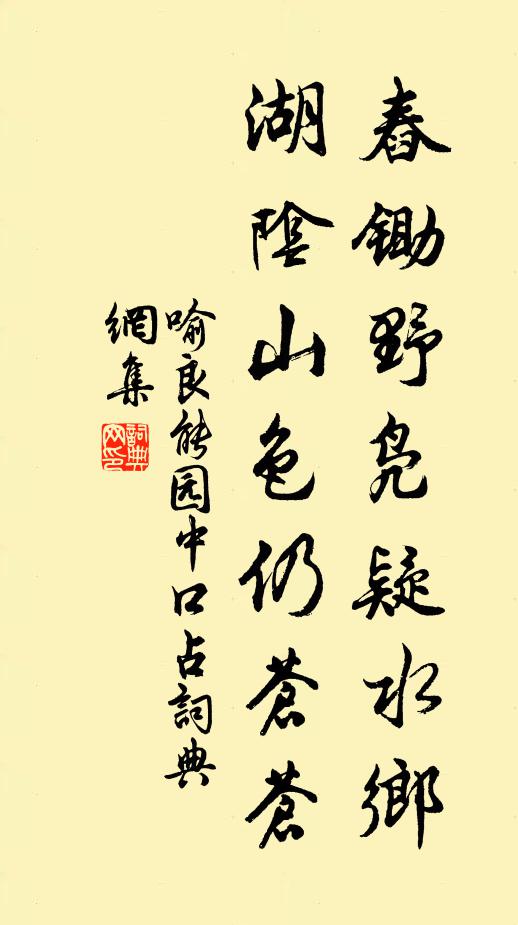 舂锄野凫疑水鄉
湖陰山色仍蒼蒼
喻良能园中口占詞典
網集
詞典
网印